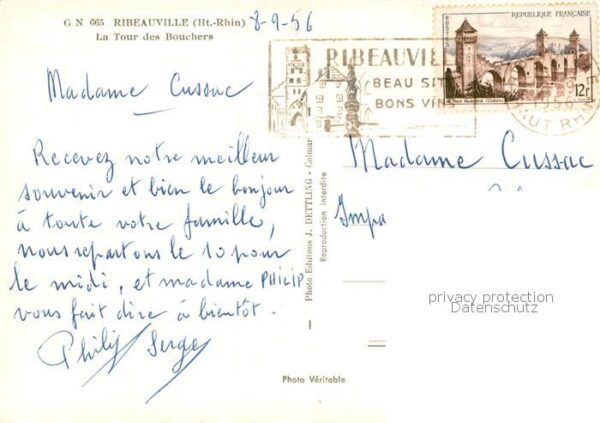 G N 665 RIBEAUVILLE (Ht.-Rhin) 8-9-56
La Tour des Bouchers
Madame Cussac
Recevez notre meilleur
souvenir et bien le bonjour
à toute votre famille,
nous repartons le 10 pour
le midi, et madame PHILIP
vous fait dire à bientôt.
Philip Serge
Photo Editions J. DETTLING - Colmar
Reproduction interdite
Photo Véritable
RIBEAUVILLE
BEAU SITE
BONS VINS
REPUBLIQUE FRANÇAISE
12f
1956
HAUT RHIN
Madame Cussac
Impa
privacy protection
Datenschutz